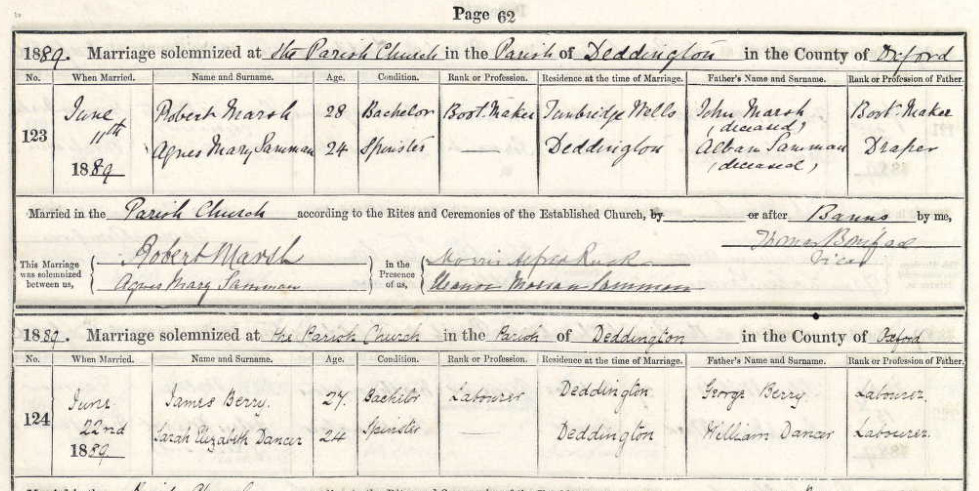 Page 62
1889. Marriage solemnized at the Parish Church in the Parish of Deddington in the County of Oxford
No. When Married. Name and Surname. Age. Condition. Rank or Profession. Residence at the time of Marriage. Father's Name and Surname. Rank or Profession of Father.
123 June 11th 1889 Robert Marsh 28 Bachelor Boot Maker Tunbridge Wells John Marsh (deceased) Boot Maker
Agnes Mary Samman 24 Spinster — Deddington Alban Samman (deceased) Draper
Married in the Parish Church according to the Rites and Ceremonies of the Established Church, by or after Banns by me,
Thomas Boniface
Vicar
This Marriage was solemnized between us, Robert Marsh
Agnes Mary Samman
In the Presence of us, Morris Alfred Ruck
Eleanor Samman
1889. Marriage solemnized at the Parish Church in the Parish of Deddington in the County of Oxford
No. When Married. Name and Surname. Age. Condition. Rank or Profession. Residence at the time of Marriage. Father's Name and Surname. Rank or Profession of Father.
124 June 22nd 1889 James Berry. 27. Bachelor Labourer Deddington George Berry. Labourer.
Sarah Elizabeth Dancer 24 Spinster — Deddington William Dancer Labourer.